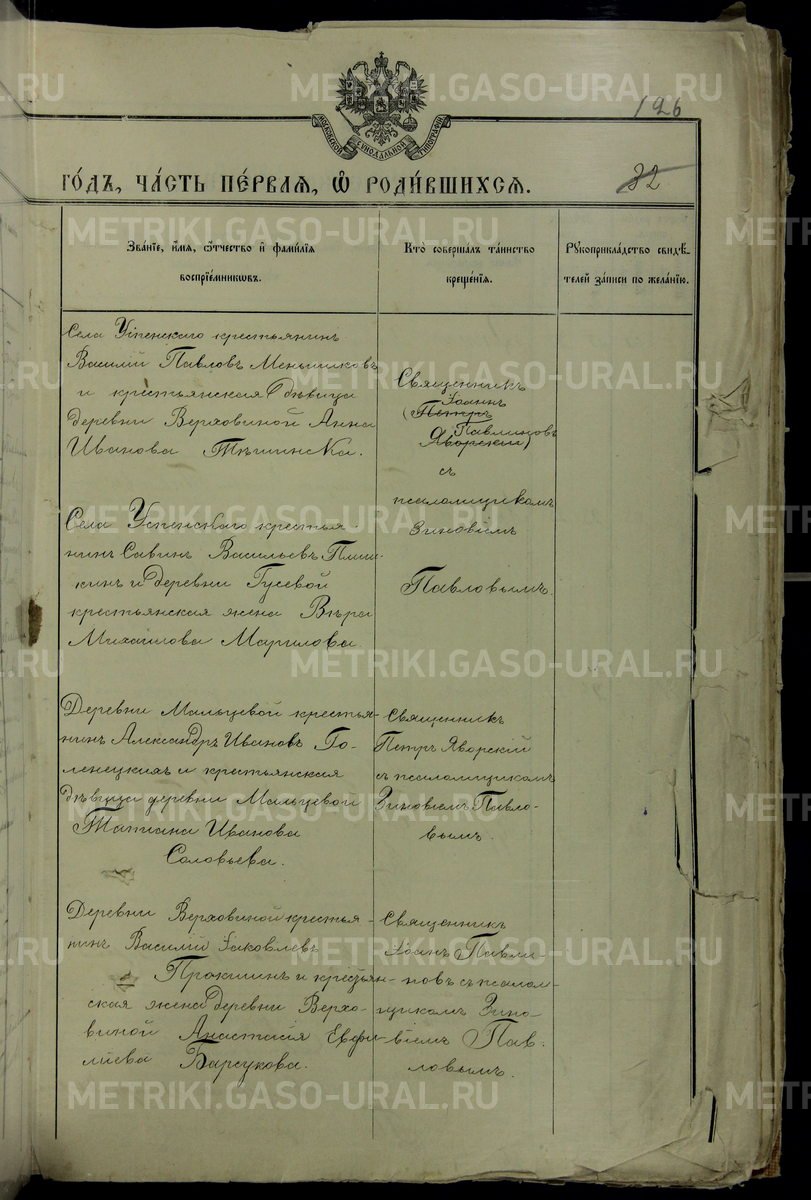 METRIKI.GASO-URAL.RU
126
МОСКОВСКОЙ СѴНОДАЛЬНОЙ ТИПОГРАФІИ
ГО́ДЪ, ЧА́СТЬ ПЕ́РВАЯ, Ѽ РОДИ́ВШИХСЯ.
32
Зва́нїе, и́мя, ѻ҆́тчество и҆ фами́лїя
воспрїе́мникѡвъ.
Кто̀ соверша́лъ та́инство
креще́нїя.
Рꙋкоприкла́дство свидѣ́-
телей за́писи по жела́нїю.
Села Успенскаго крестьянинъ
Василій Павловъ Меньшиковъ
и крестьянская дѣвица
деревни Верховиной Анна
Иванова
Священникъ
Іоаннъ
(Петръ
Павлиновъ
Яворскій)
съ
псаломщикомъ
Зиновіемъ
Павловымъ
Села Успенскаго крестья-
нинъ Савинъ Васильевъ Плиш-
кинъ и деревни Гусевой
крестьянская жена Вѣра
Михаилова Марилова.
Деревни Мальцевой крестья-
нинъ Александръ Ивановъ Го-
ленецкихъ и крестьянская
дѣвица деревни Мальцевой
Татиана Иванова
Соловьева.
Священникъ
Петръ Яворскій
съ псаломщикомъ
Зиновіемъ Павло-
вымъ.
Деревни Верховиной крестья-
нинъ Василій Іаковлевъ
Прокшинъ и крестьян-
ская жена деревни Верхо-
виной Анастасія Евфи-
міева Барсукова.
Священникъ
Іоанъ Павли-
новъ съ псалом-
щикомъ Зино-
віемъ Пав-
ловымъ.